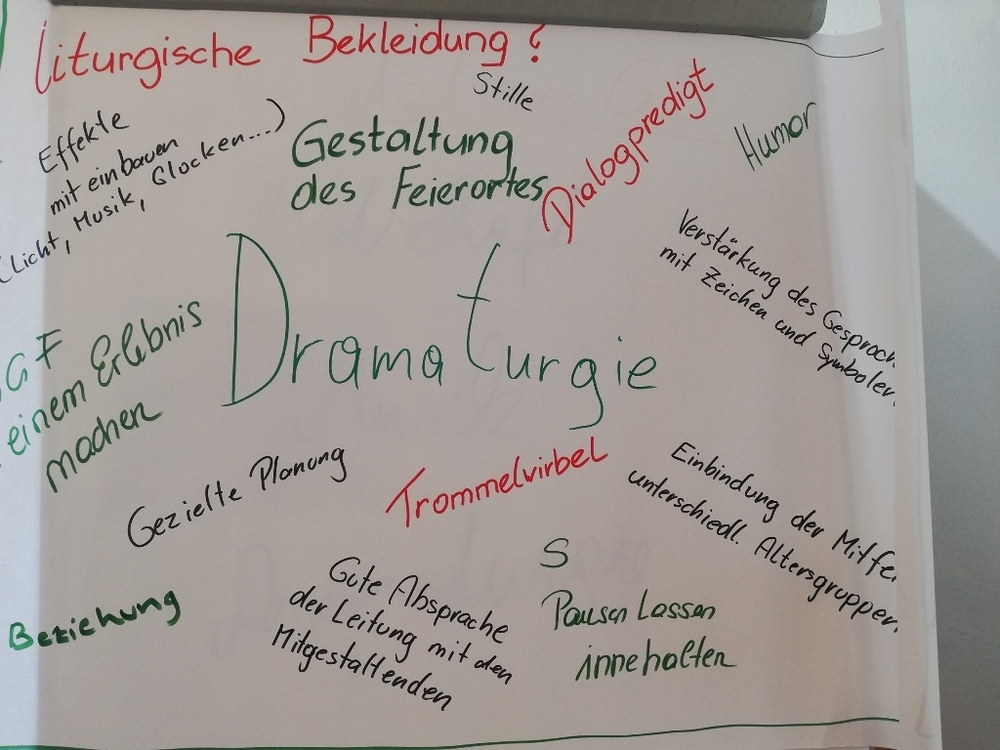 Liturgische Bekleidung ?
Stille
Effekte
mit einbauen
(Licht, Musik, Glocken...)
Gestaltung
des Feierortes
Dialogpredigt
Humor
Verstärkung des Gesproch
mit Zeichen und Symbolen
Dramaturgie
GF
einem Erlebnis
machen
Gezielte Planung
Trommelwirbel
Einbindung der Mitfei
unterschiedl. Altersgruppen
Beziehung
Gute Absprache
der Leitung mit den
Mitgestaltenden
S
Pausen Lassen
innehalten